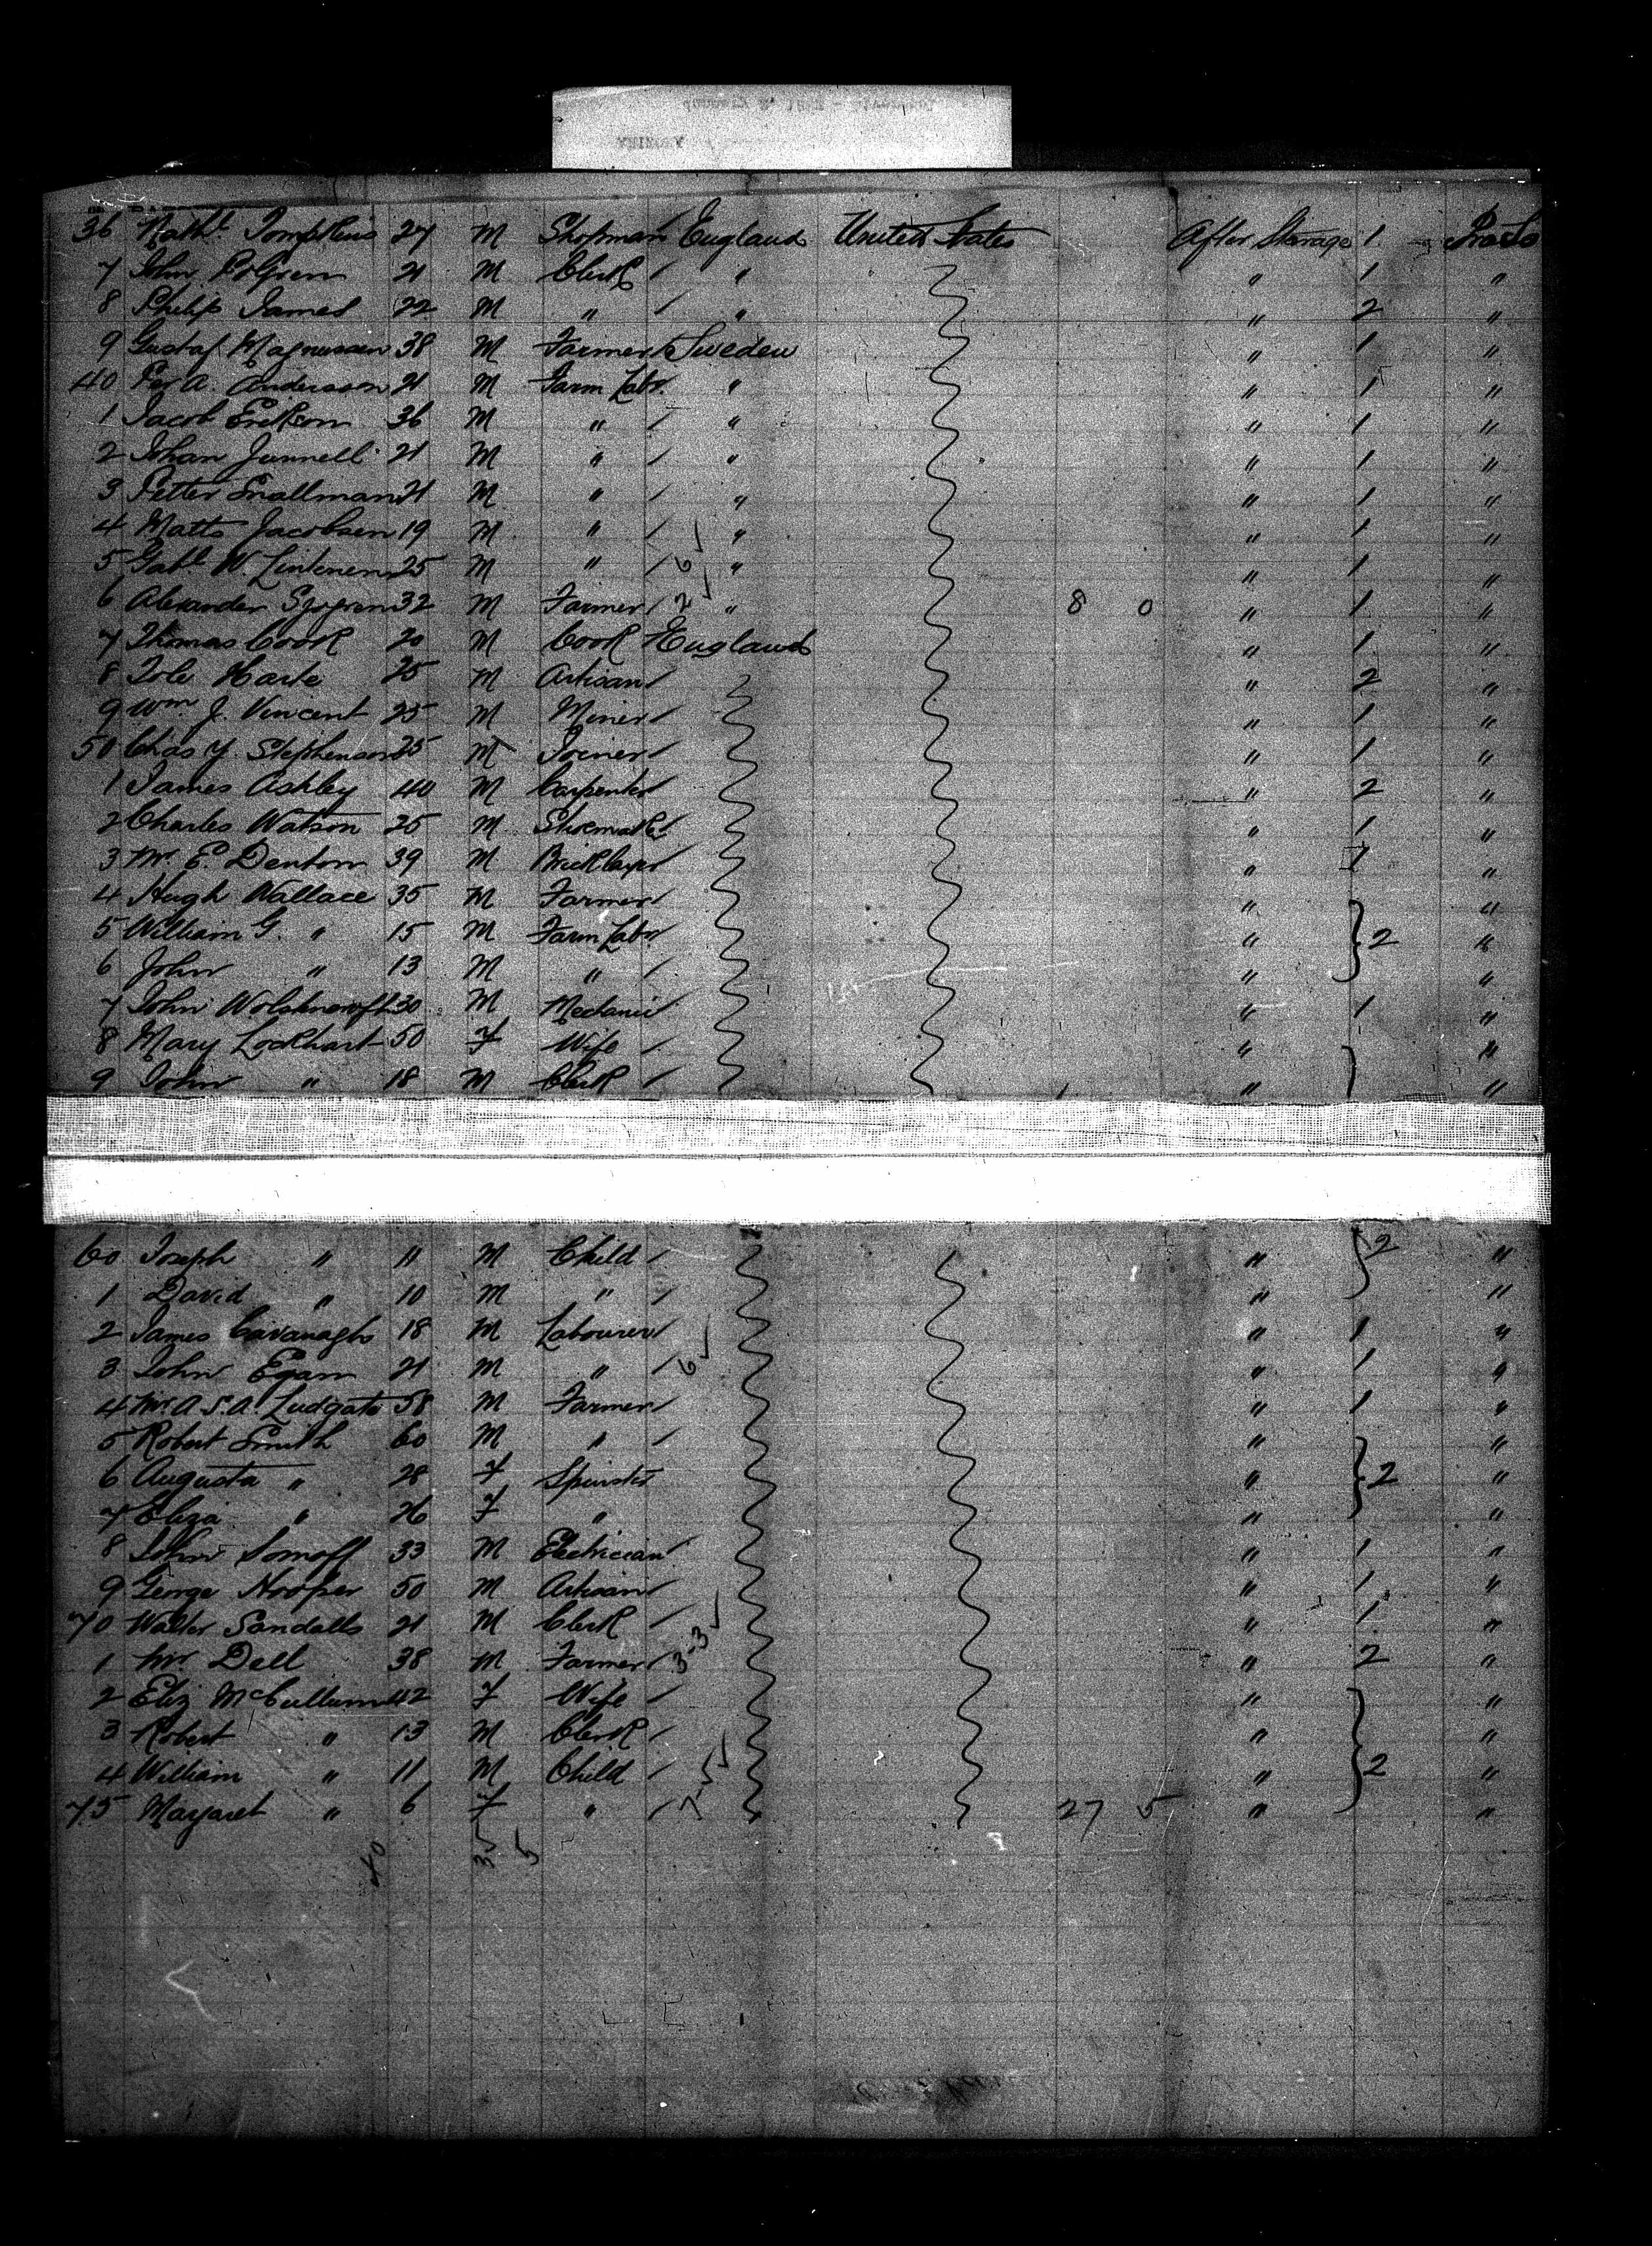 36 Nathl. Tompkins 27 M Shopman England United States After Steerage 1 Pro So
7 John 21 M Clerk " " 1 "
8 Philip James 22 M " " " 2 "
9 Gustaf Magnussen 38 M Farmer Sweden " 1 "
40 Per A. Andersson 21 M Farm Labr. " " 1 "
1 Jacob Erikson 36 M " " " 1 "
2 Johan Junnell 21 M " " " 1 "
3 Petter Snallman 21 M " " " 1 "
4 Matts Jacobsen 19 M " " " 1 "
5 Gabl. W. Lintenen 25 M " 6 " " 1 "
6 Alexander Sjogren 32 M Farmer 2 " 8 0 " 1 "
7 Thomas Cook 20 M Cook England " 1 "
8 Harte 25 M Artisan " 2 "
9 Wm. J. Vincent 25 M Miner " 1 "
50 Chas Y. Stephenson 25 M Joiner " 1 "
1 James Ashley 40 M Carpenter " 2 "
2 Charles Watson 25 M Shoemaker " 1 "
3 Mr. E. Denton 39 M Bricklayer " 1 "
4 Hugh Wallace 35 M Farmer " "
5 William G. " 15 M Farm Labr. " 2 "
6 John " 13 M " " "
7 John Wolstencroft 30 M Mechanic " 1 "
8 Mary Lockhart 50 F Wife " "
9 John " 18 M Clerk " "
60 Joseph " 11 M Child " 2 "
1 David " 10 M " " "
2 James Cavanagh 18 M Labourer " 1 "
3 John Egan 21 M " 6 " 1 "
4 Mr. A. S. A. Ludgate 58 M Farmer " 1 "
5 Robert Smith 60 M " " "
6 Augusta " 28 F Spinster " 2 "
7 Eliza " 26 F " " "
8 John Somoff 33 M Electrician " 1 "
9 George Hooper 50 M Artisan " 1 "
70 Walter Sandalls 21 M Clerk " 1 "
1 Mr Dell 38 M Farmer 3-3 " 2 "
2 Eliz McCullum 42 F Wife " "
3 Robert " 13 M Clerk " "
4 William " 11 M Child " 2 "
75 Margaret " 6 F " 27 5 " "
40 35 5